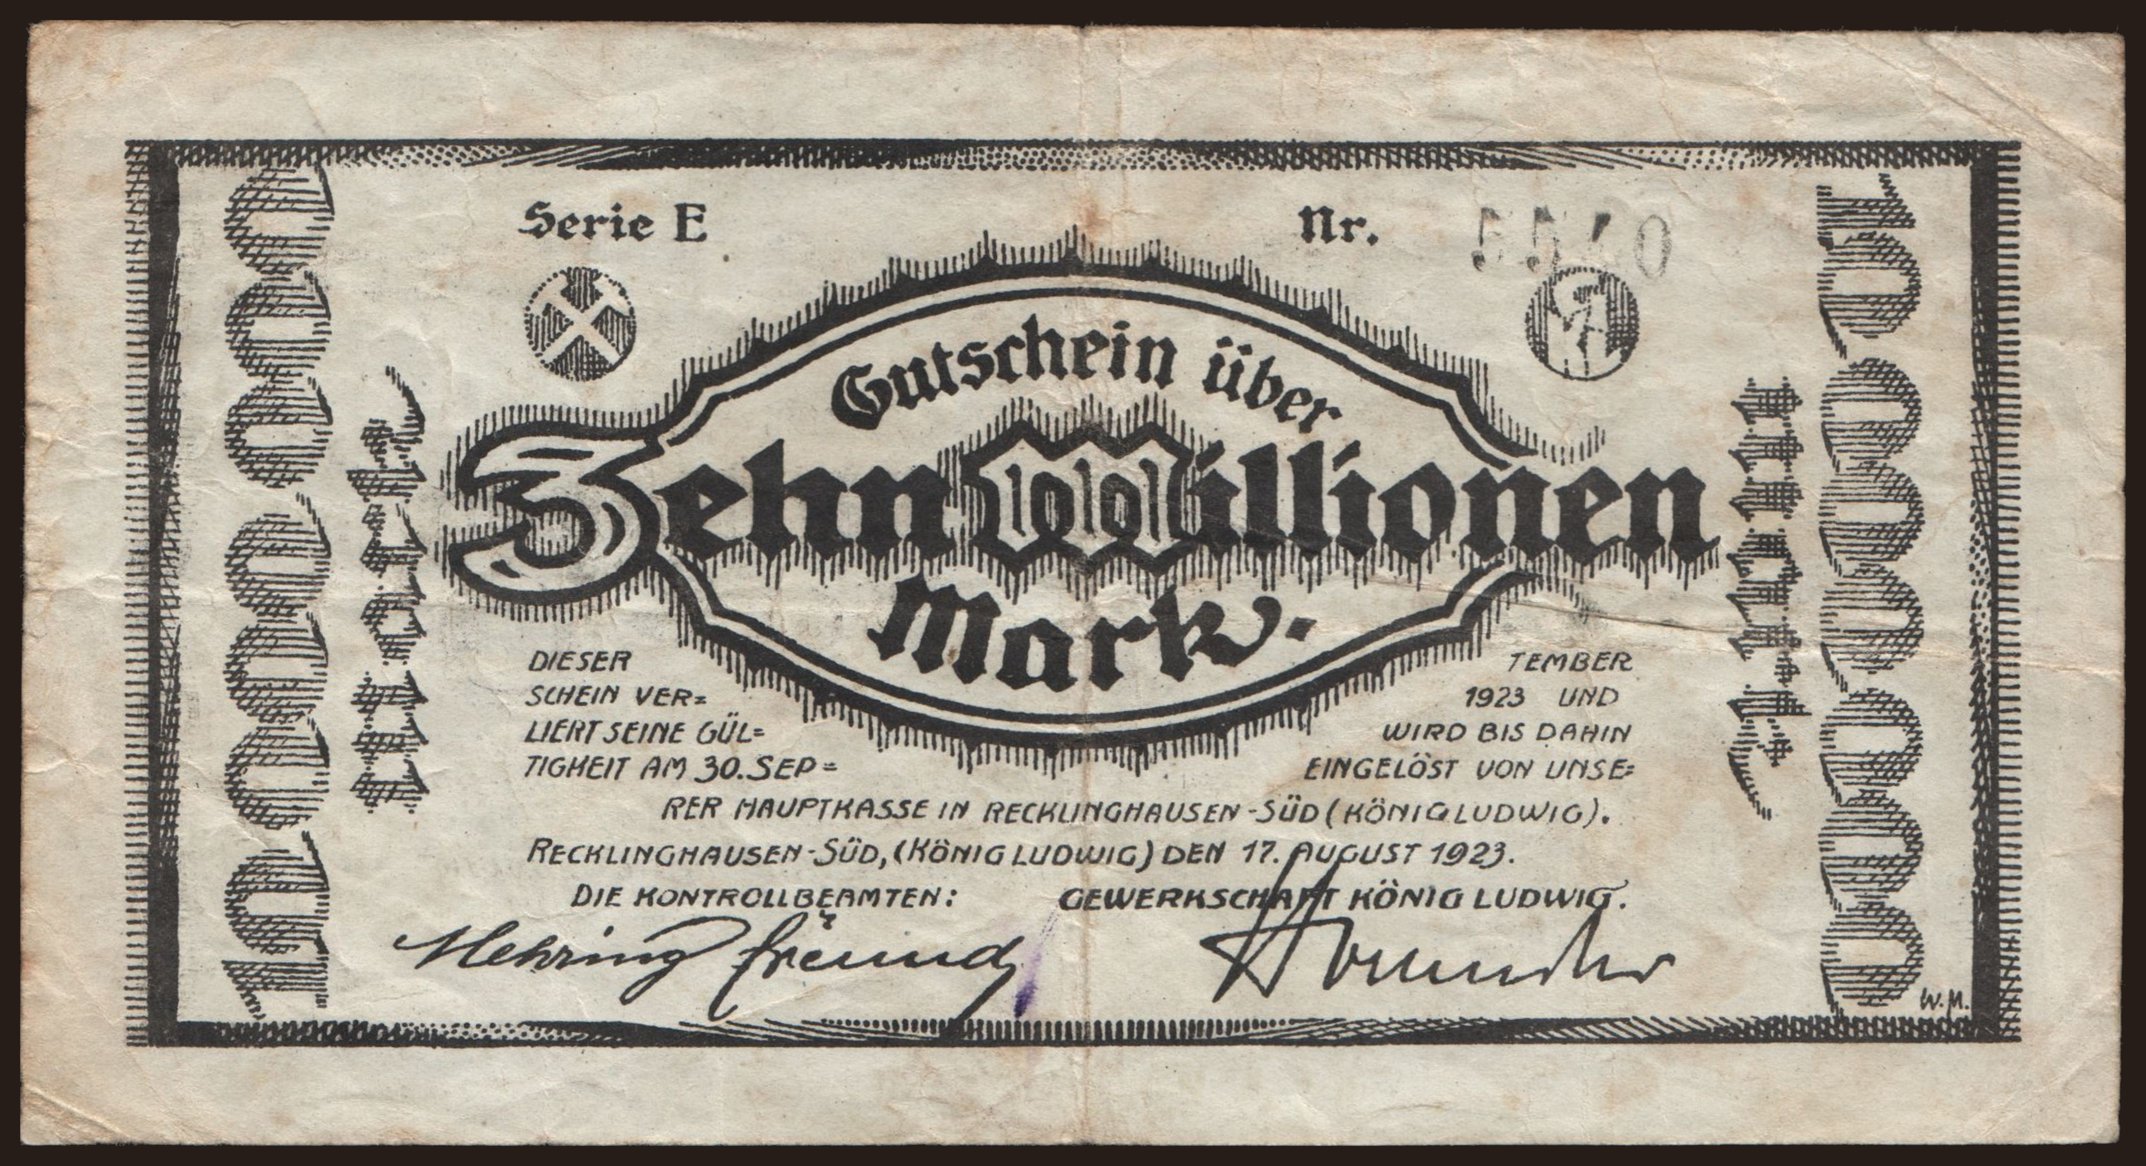 Serie E
Nr. 5540
Gutschein über
Zehn Millionen
Mark.
10000000
Mark
10000000
Mark
DIESER
SCHEIN VER=
LIERT SEINE GÜL=
TIGKEIT AM 30. SEP=
TEMBER
1923 UND
WIRD BIS DAHIN
EINGELÖST VON UNSE=
RER HAUPTKASSE IN RECKLINGHAUSEN-SÜD (KÖNIG LUDWIG).
RECKLINGHAUSEN-SÜD, (KÖNIG LUDWIG) DEN 17. AUGUST 1923.
DIE KONTROLLBEAMTEN:
GEWERKSCHAFT KÖNIG LUDWIG.
Mehring
W.M.